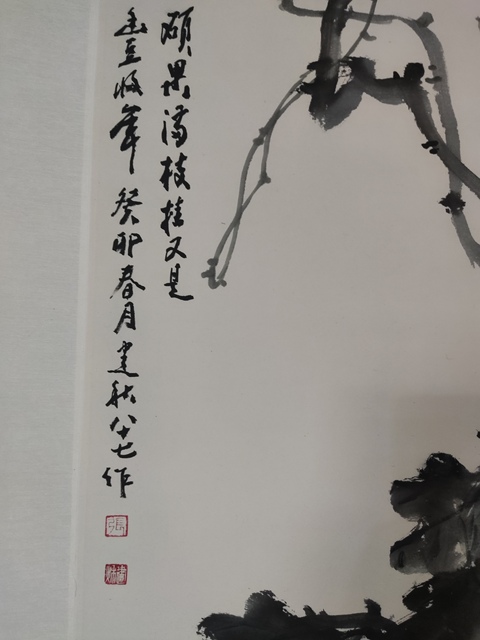 碩果滿枝挂又是
豐收年癸卯春月建秋八十七作
張
建秋